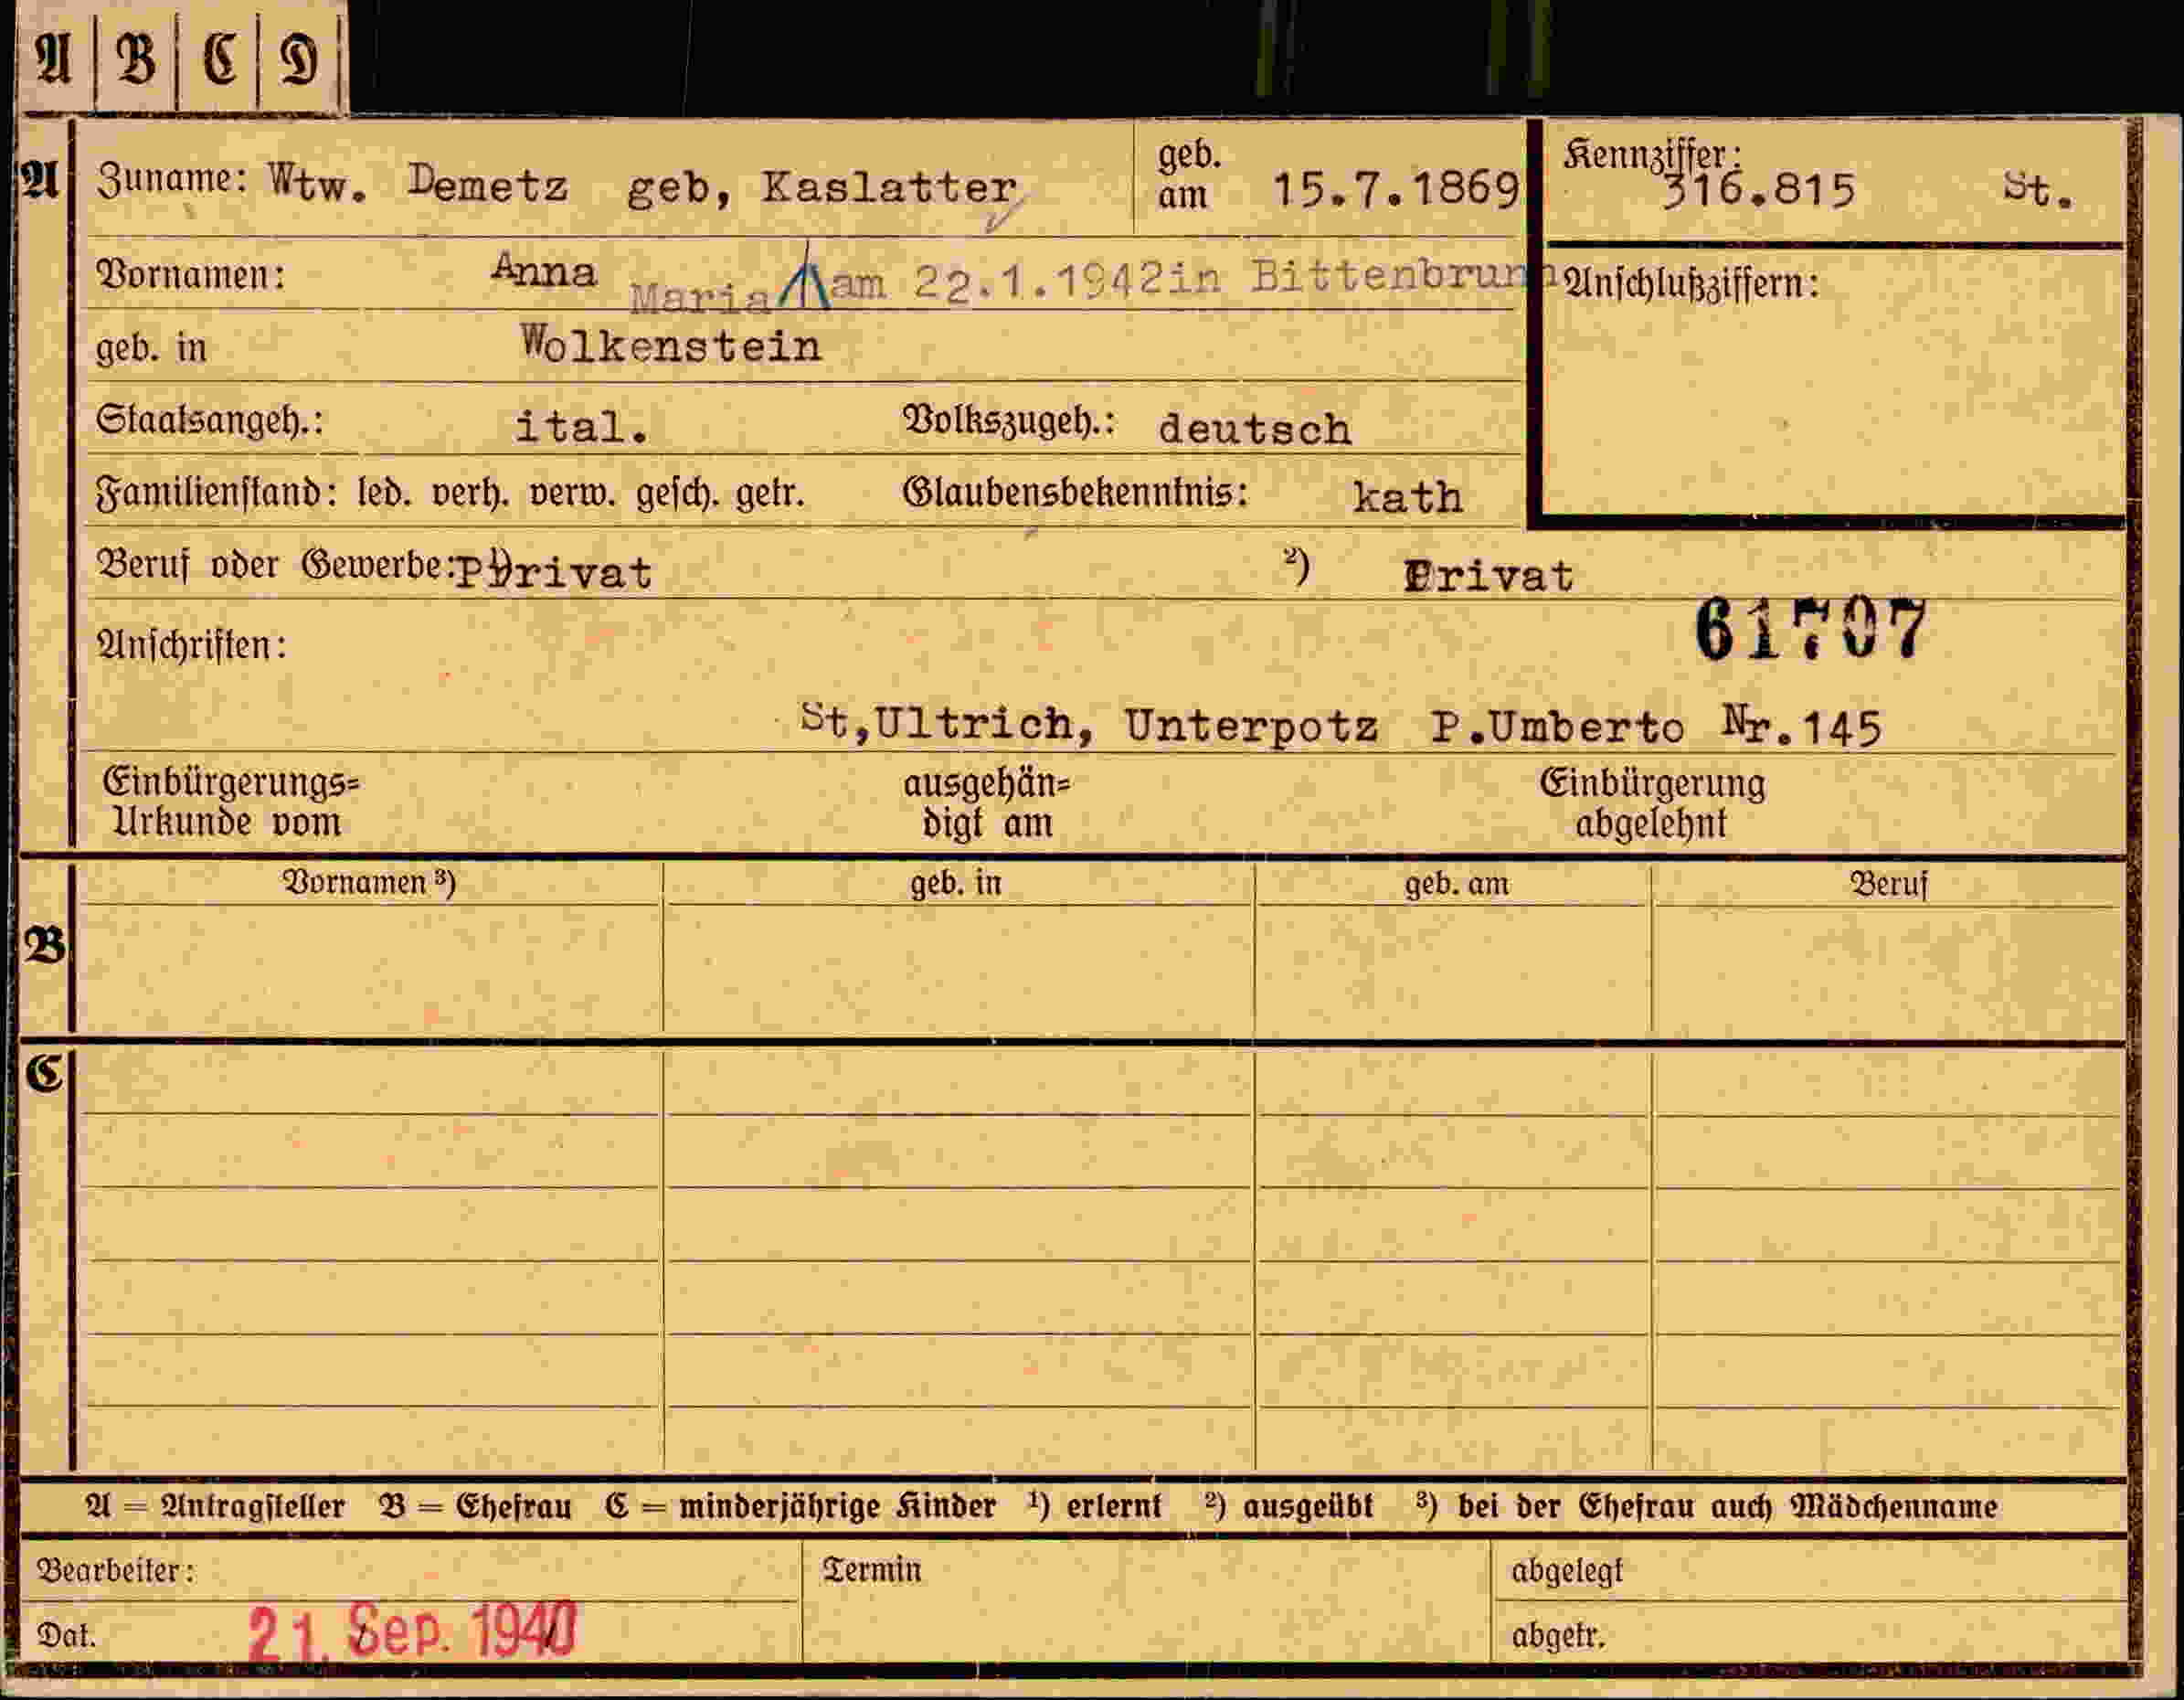 A B C D
A Zuname: Wtw. Demetz geb, Kaslatter geb. am 15.7.1869 Kennziffer: 316.815 St.
Vornamen: Anna Maria am 22.1.1942in Bittenbrunn Anschlußziffern:
geb. in Wolkenstein
Staatsangeh.: ital. Volkszugeh.: deutsch
Familienstand: led. verh. verw. gesch. getr. Glaubensbekenntnis: kath
Beruf oder Gewerbe: Privat ²) Privat
61707
Anschriften:
St,Ultrich, Unterpotz P.Umberto Nr.145
Einbürgerungs= ausgehän= Einbürgerung
Urkunde vom digt am abgelehnt
Vornamen ³) geb. in geb. am Beruf
B
C
A = Antragsteller B = Ehefrau C = minderjährige Kinder ¹) erlernt ²) ausgeübt ³) bei der Ehefrau auch Mädchenname
Bearbeiter: Termin abgelegt
Dat. 21. Sep. 1940 abgetr.